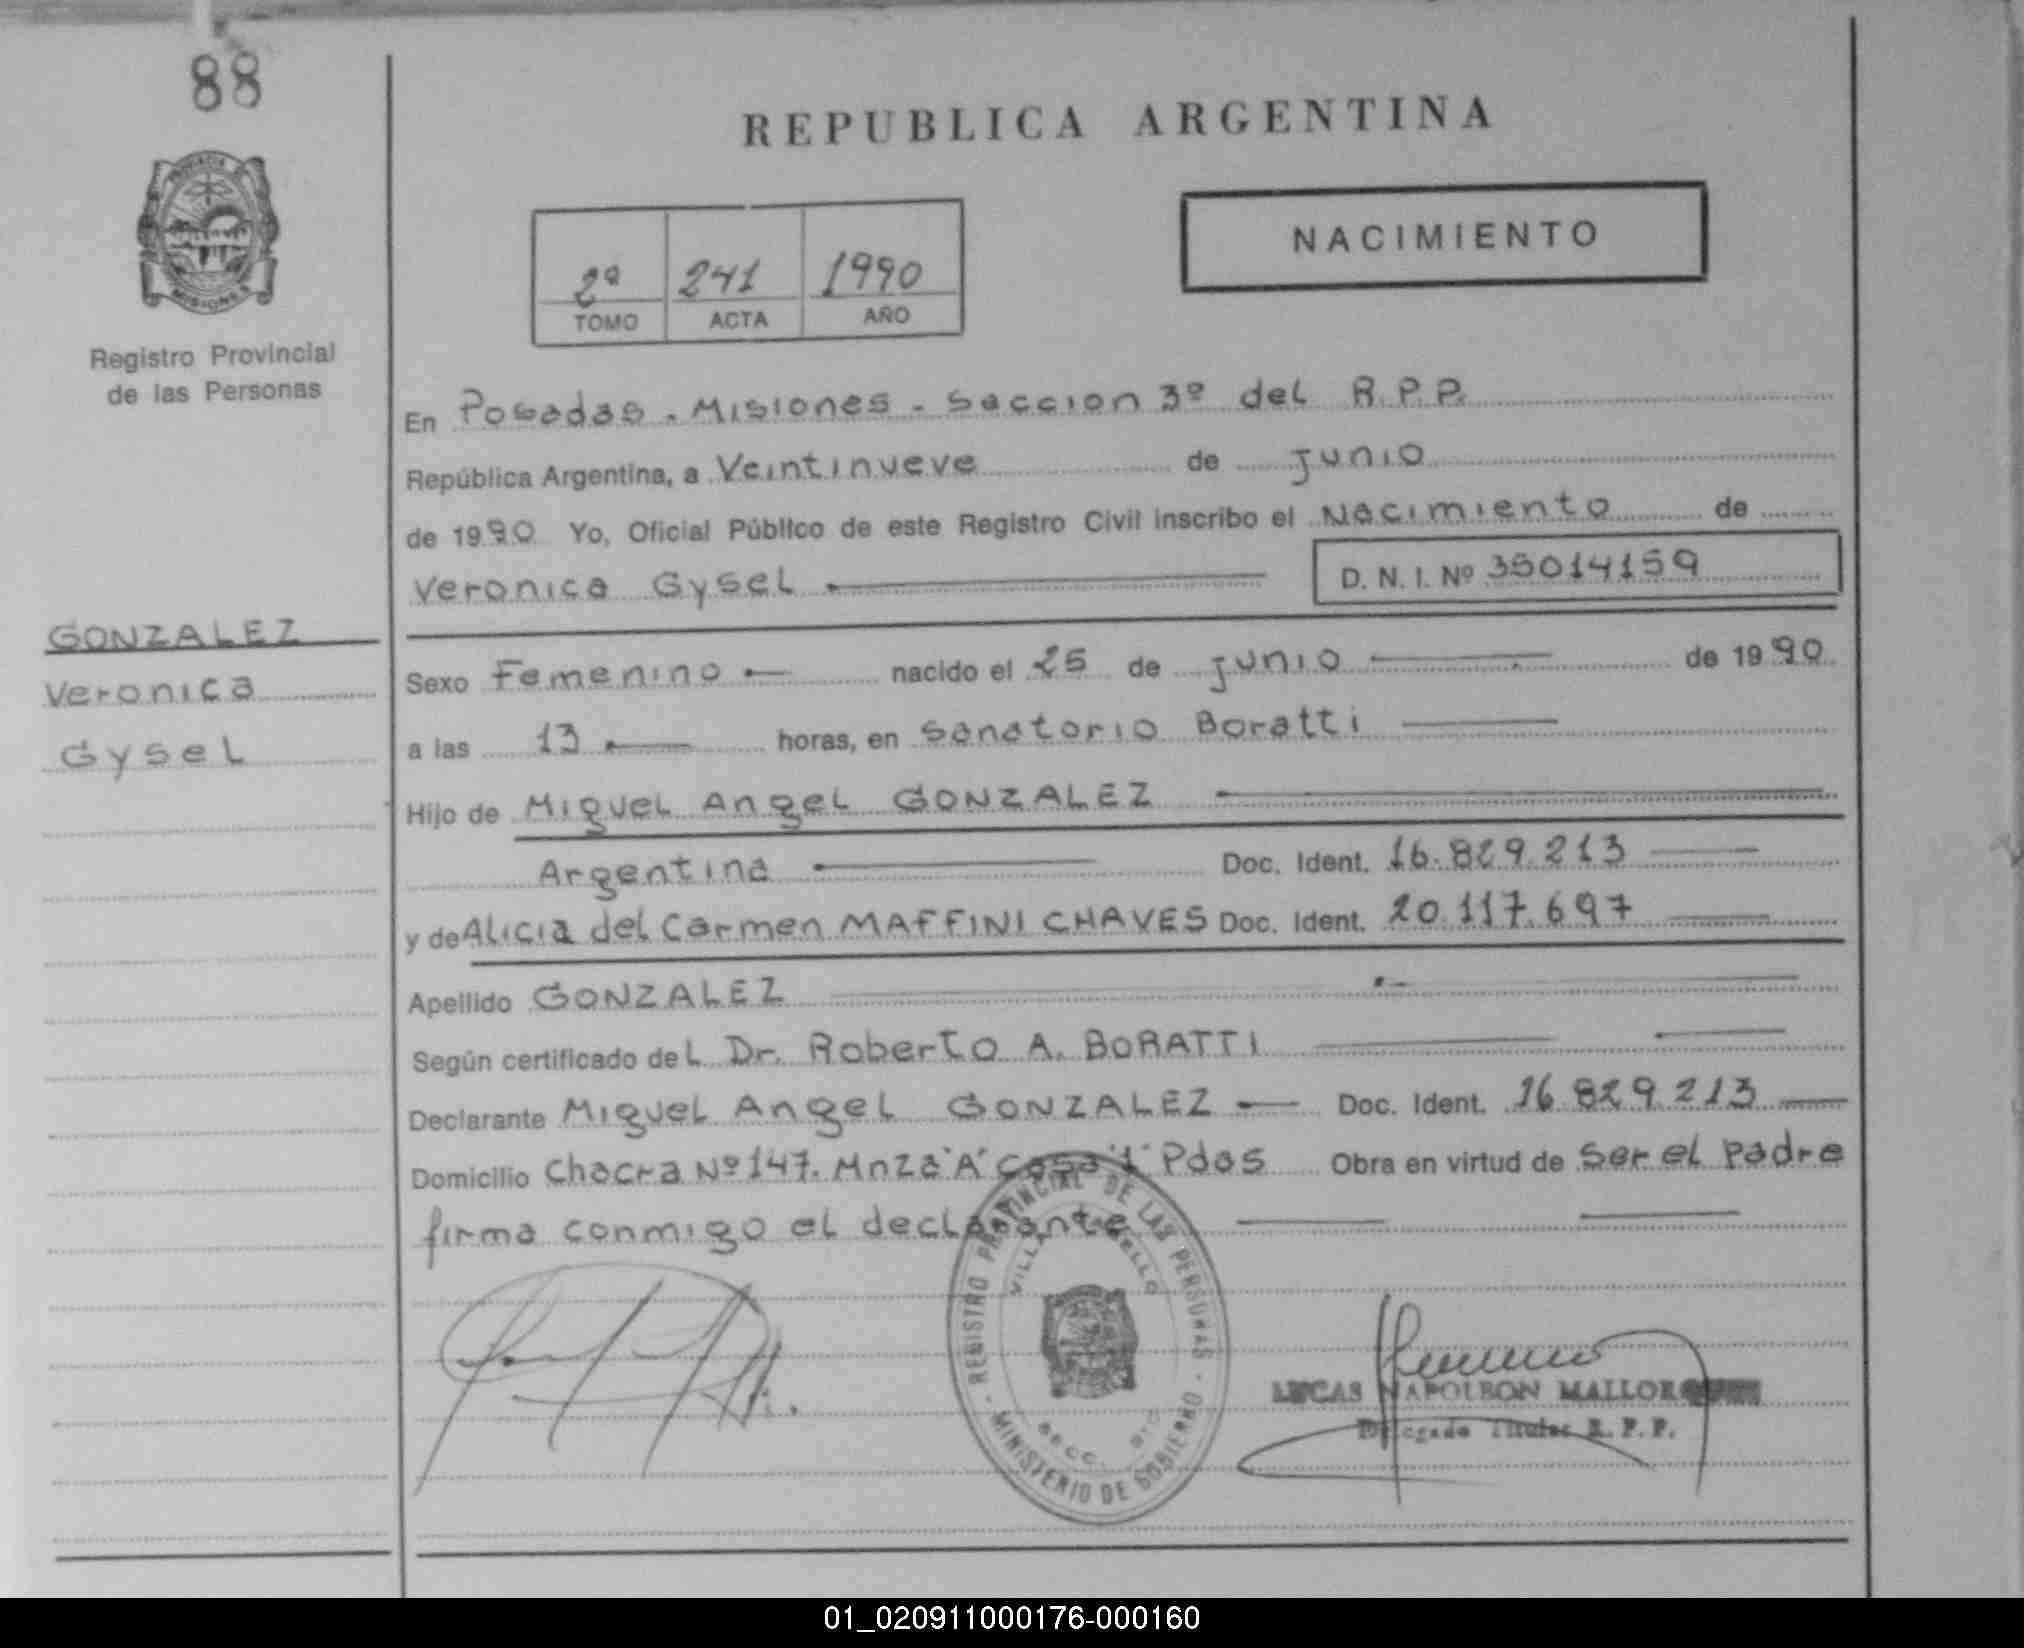 88
REPUBLICA ARGENTINA
PROVINCIA DE
MISIONES
Registro Provincial
de las Personas
2ª 241 1990
TOMO ACTA AÑO
NACIMIENTO
En Posadas - Misiones - Seccion 3º del R.P.P.
República Argentina, a Veintinueve de junio
de 1990 Yo, Oficial Público de este Registro Civil inscribo el Nacimiento de
Veronica Gysel D. N. I. Nº 35014159
GONZALEZ
Veronica
Gysel
Sexo Femenino nacido el 25 de junio de 1990
a las 13 horas, en Sanatorio Boratti
Hijo de Miguel Angel GONZALEZ
Argentina Doc. Ident. 16.829.213
y de Alicia del Carmen MAFFINI CHAVES Doc. Ident. 20.117.697
Apellido GONZALEZ
Según certificado del Dr. Roberto A. BORATTI
Declarante Miguel Angel GONZALEZ Doc. Ident. 16.829.213
Domicilio Chacra Nº 147. Mnza "A" casa "1" Pdas Obra en virtud de ser el padre
firma conmigo el declarante
REGISTRO PROVINCIAL DE LAS PERSONAS
VILLA
SECC.
MINISTERIO DE GOBIERNO
LUCAS NAPOLEON
Delegado Titular R. P. P.
01_020911000176-000160